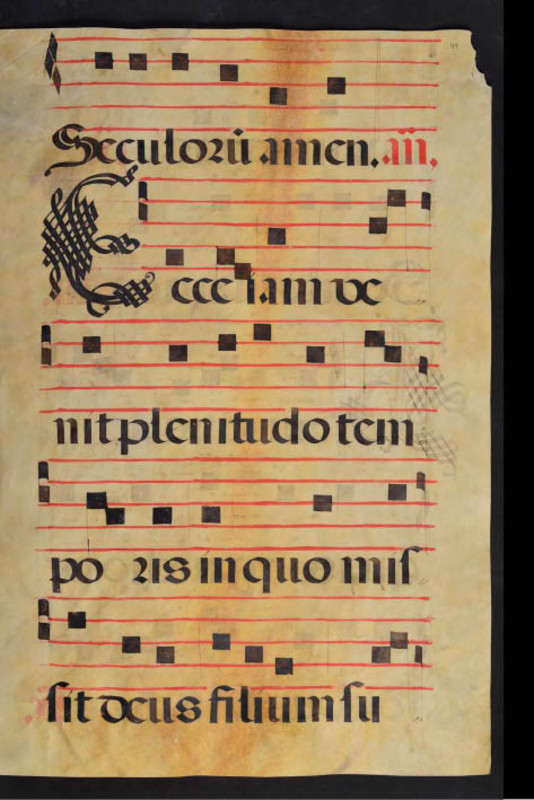 Seculorū amen. añ.
Ecce iam ve
nit plenitudo tem
po ris in quo mis
sit deus filium su